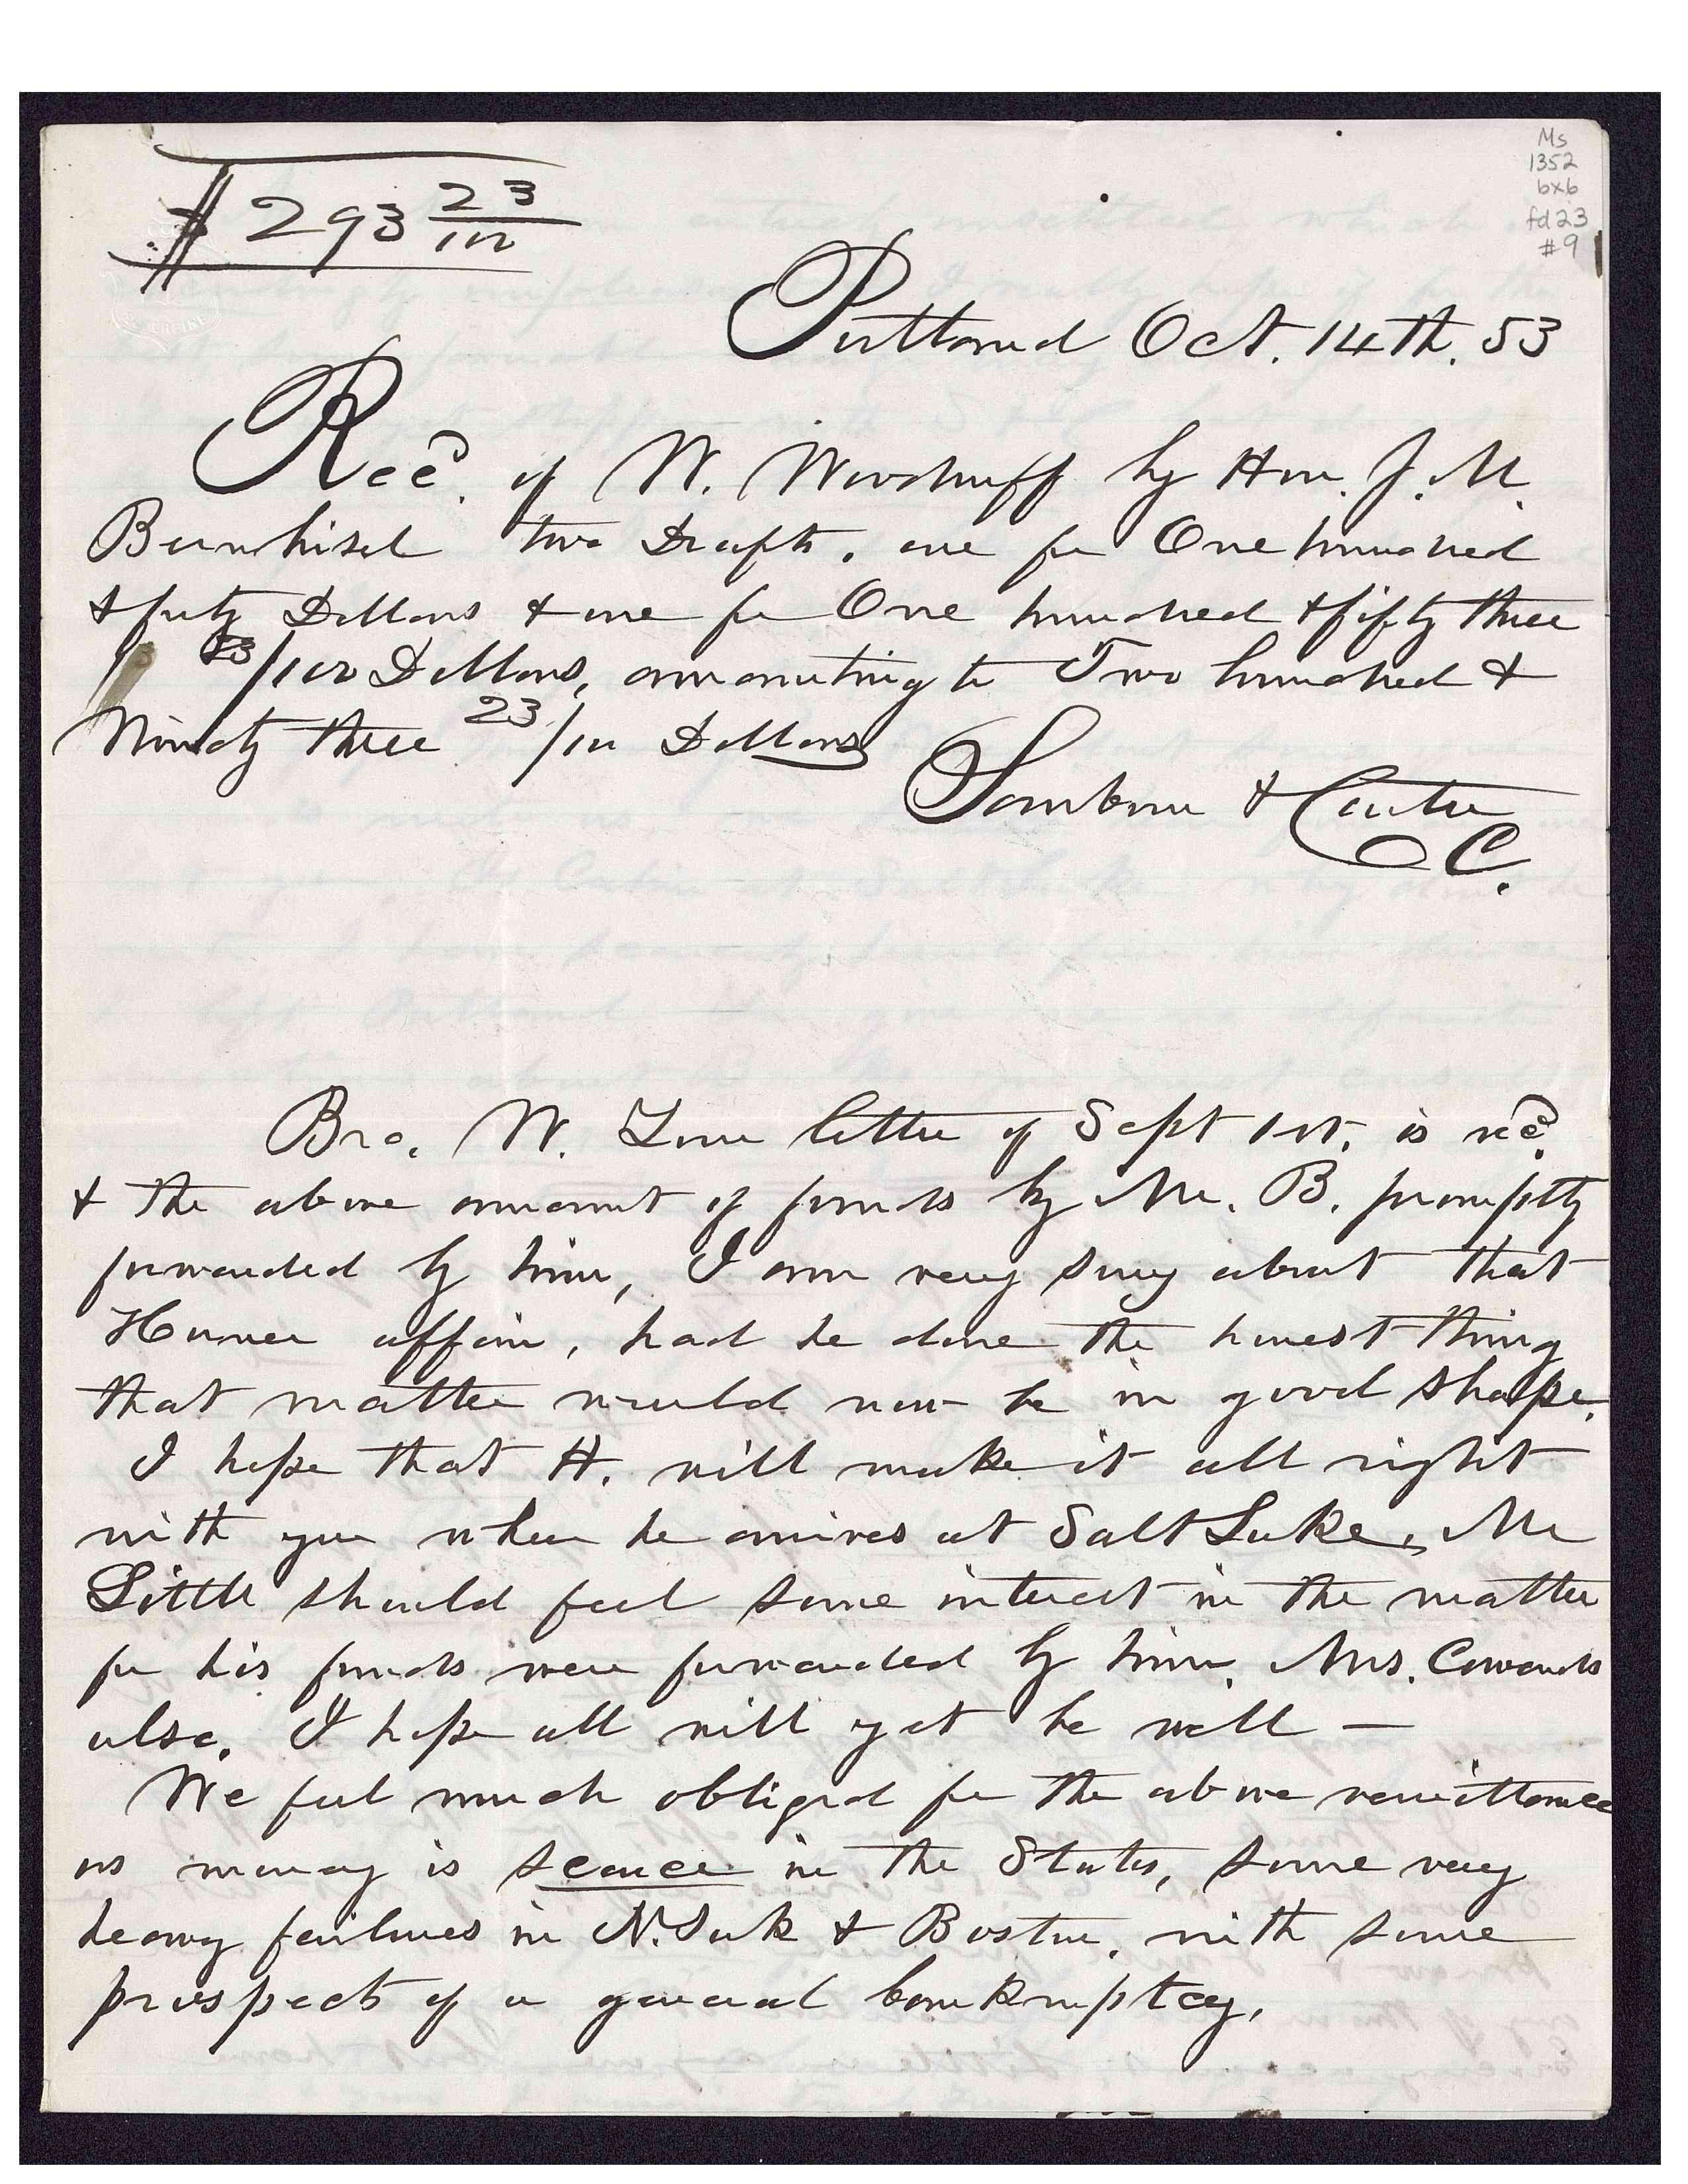 Ms
1352
bx6
fd23
#9
$293 23/100
Portland Oct. 14th. 53
Recd. of W. Woodruff by Hon. J. M.
Bernhisel two Drafts, one for One hundred
& forty Dollars & one for One hundred & fifty three
23/100 Dollars, amounting to Two hundred &
Ninety three 23/100 Dollars
Sanborn & Carter
C.
Bro. W. Your letter of Sept 1st. is recd.
& the above amount of funds by Mr. B. promptly
forwarded by him, I am very sorry about that
affair, had he done the honest thing
that matter would now be in good shape.
I hope that H. will make it all right
with you when he arrives at Salt Lake, Mr
Little should feel some interest in the matter
for his funds were forwarded by him. Mrs.
also. I hope all will yet be well —
We feel much obliged for the above remittance
as money is scarce in the States, some very
heavy failures in N. York & Boston, with some
prospects of a general bankruptcy.